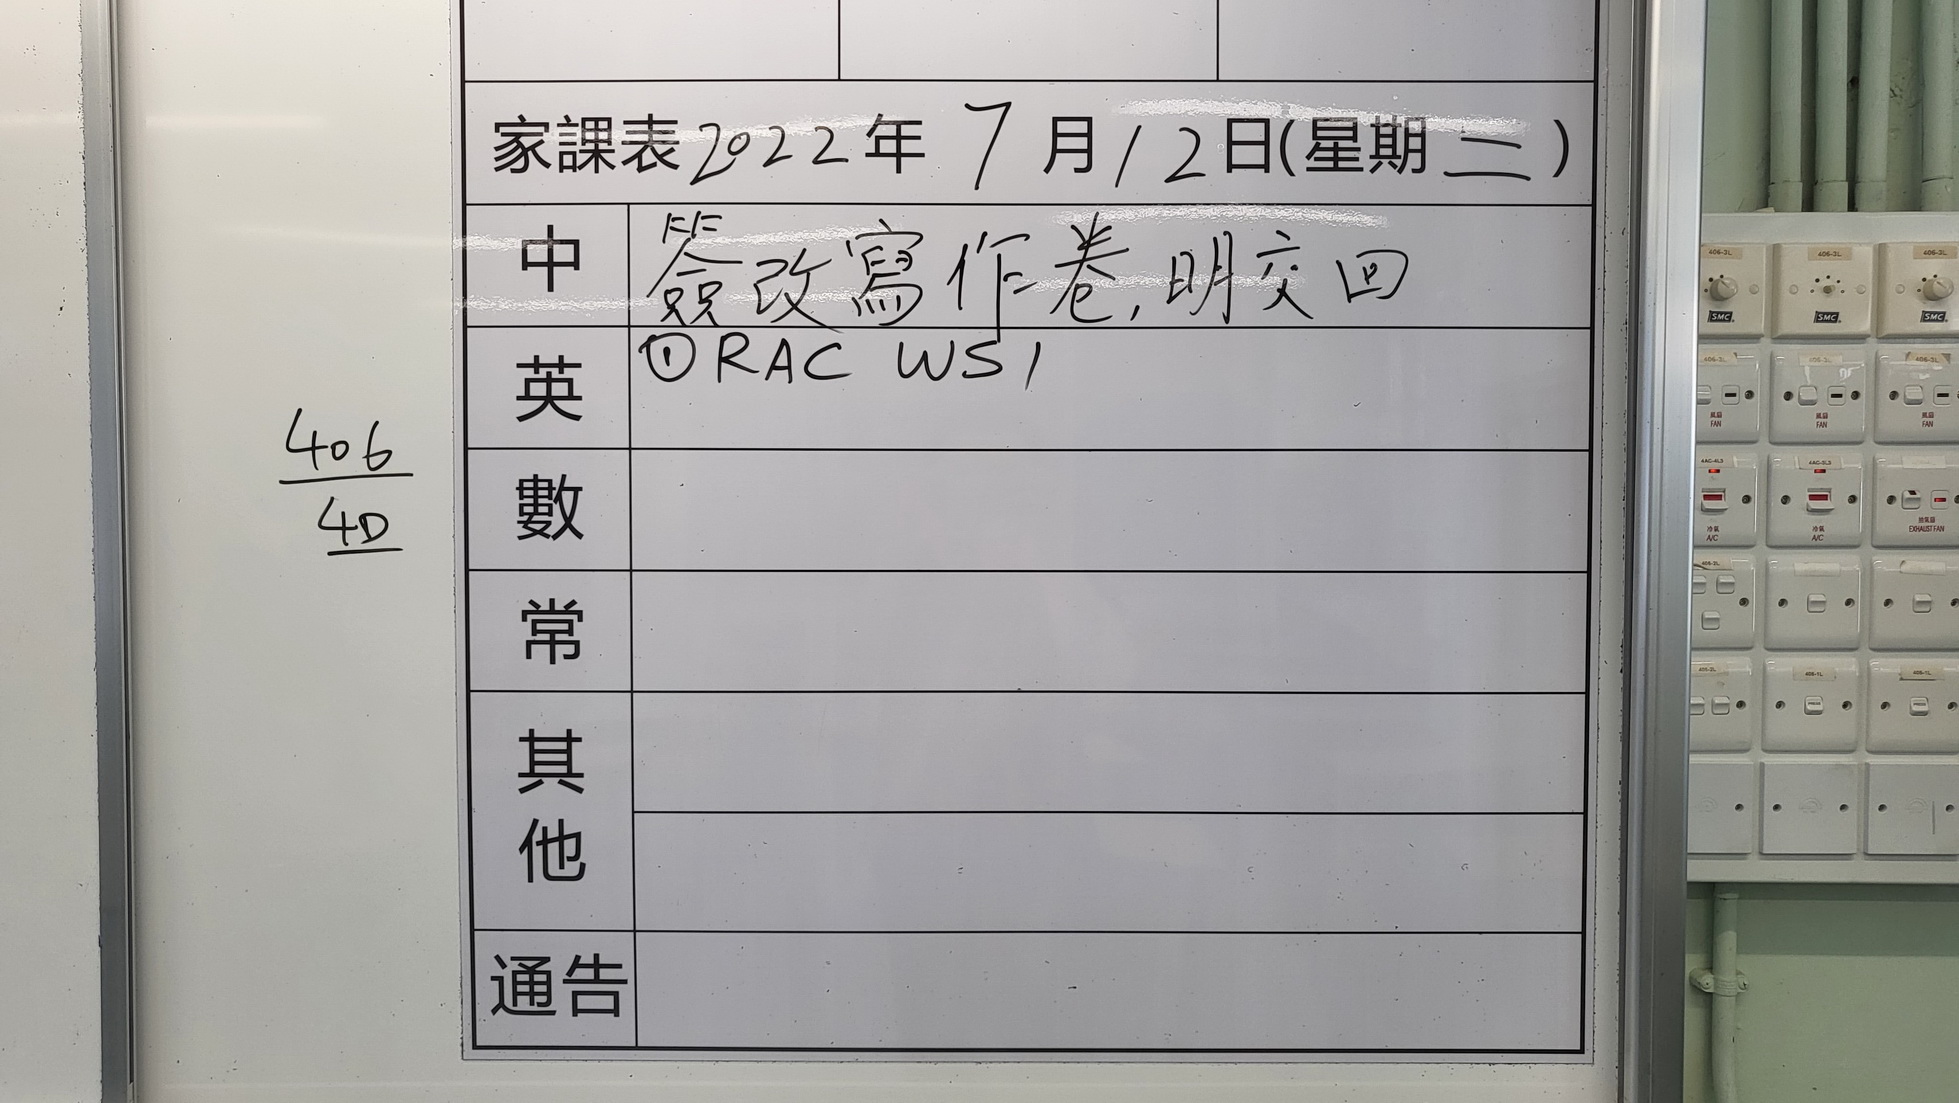 家課表2022年 7 月12日(星期二)
中 簽改寫作卷,明交回
英 ①RAC WS1
數
常
其他
通告
406
4D
406-3L
406-2L
SMC
SMC
SMC
風扇
FAN
風扇
FAN
風扇
FAN
4AC-4L3
4AC-3L3
冷氣
A/C
冷氣
A/C
抽氣扇
EXHAUST FAN
406-1L
406-1L
PRESS